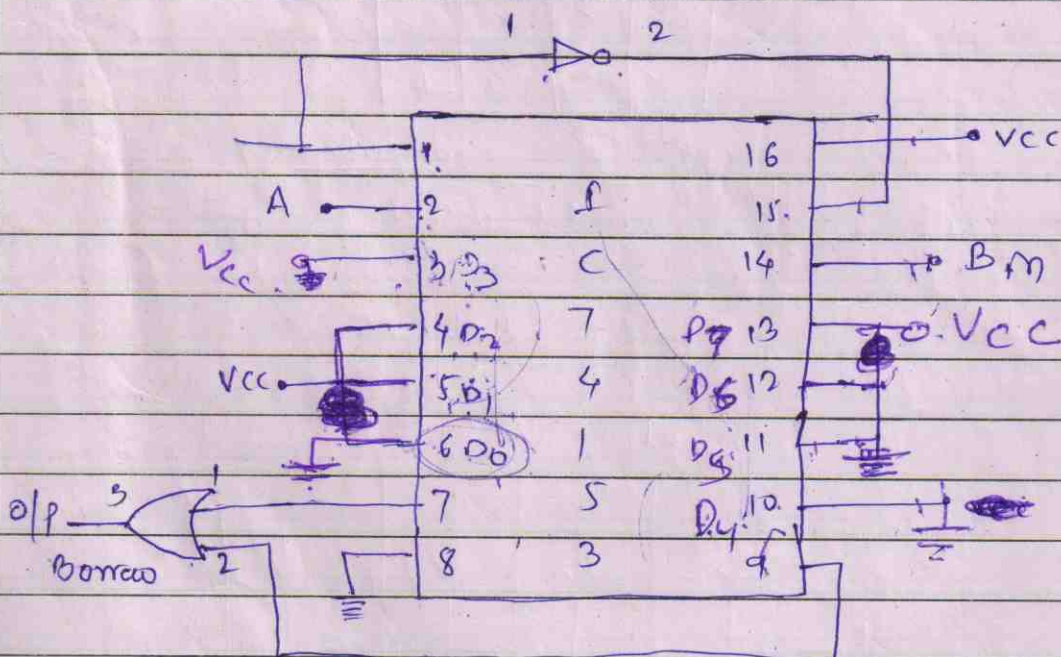 1 2
1 16 VCC
A 2 I 15
VCC 3 D3 C 14 Bin
4 D2 7 D7 13 VCC
VCC 5 D1 4 D6 12
6 D0 1 D5 11
3 1 7 5 D4 10
O/P 2 8 3 9
Borrow